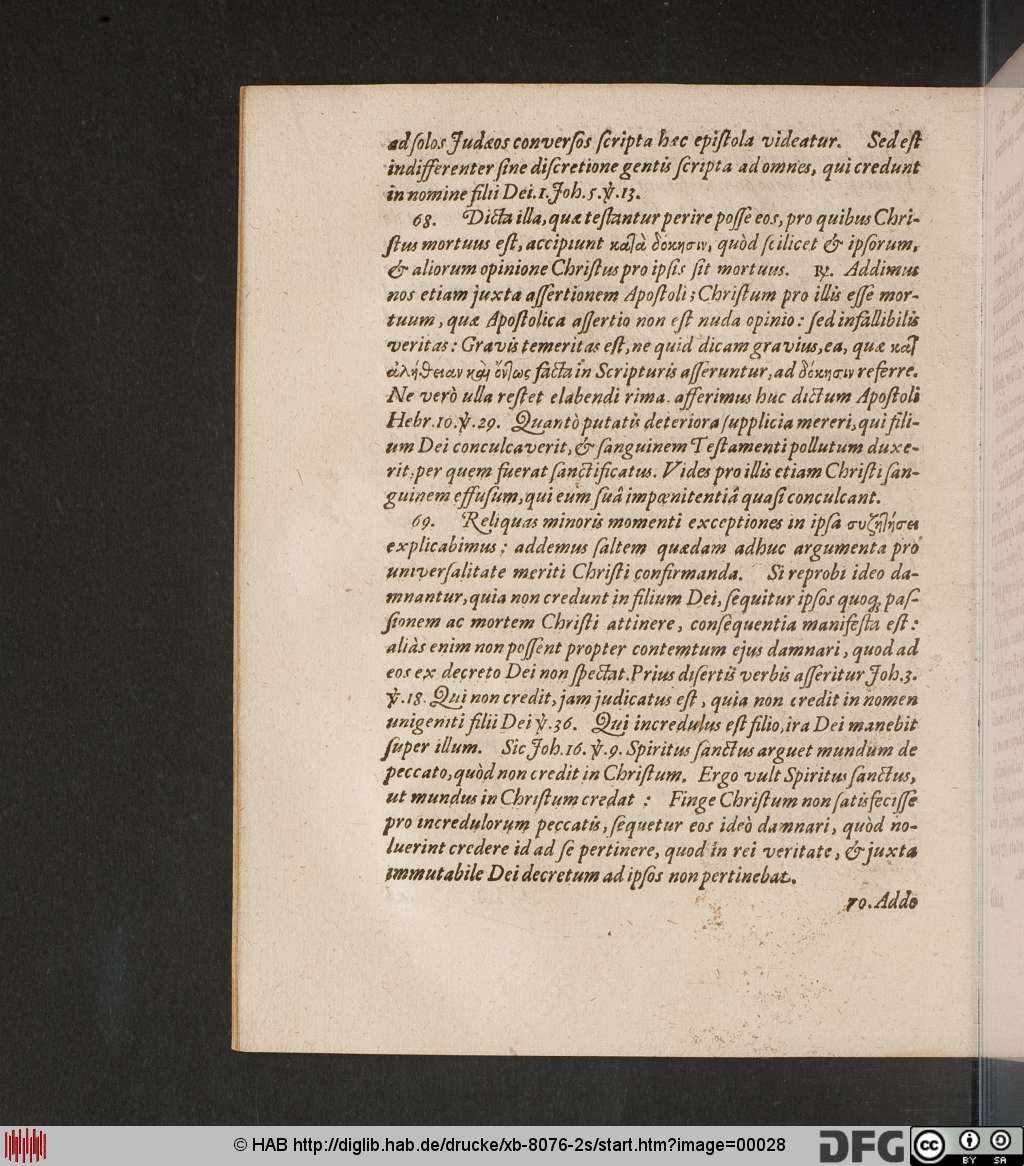 ad ſolos Judæos converſos ſcripta hæc epiſtola videatur. Sed eſt
indifferenter ſine diſcretione gentis ſcripta ad omnes, qui credunt
in nomine filii Dei. 1. Joh. 5. ℣. 13.
68. Dicta illa, quæ teſtantur perire poſſe eos, pro quibus Chri-
ſtus mortuus eſt, accipiunt καϊὰ δόκησιν, quòd ſcilicet & ipſorum,
& aliorum opinione Chriſtus pro ipſis ſit mortuus. ℞. Addimus
nos etiam juxta aſſertionem Apoſtoli; Chriſtum pro illis eſſe mor-
tuum, quæ Apoſtolica aſſertio non eſt nuda opinio: ſed infallibilis
veritas: Gravis temeritas eſt, ne quid dicam gravius, ea, quæ κατ
ἀλήθειαν καὶ ὄντως facta in Scripturis aſſeruntur, ad δόκησιν referre.
Ne verò ulla reſtet elabendi rima. afferimus huc dictum Apoſtoli
Hebr. 10. ℣. 29. Quantò putatis deteriora ſupplicia mereri, qui fili-
um Dei conculcaverit, & ſanguinem Teſtamenti pollutum duxe-
rit, per quem fuerat ſanctificatus. Vides pro illis etiam Chriſti ſan-
guinem effuſum, qui eum ſuâ impœnitentiâ quaſi conculcant.
69. Reliquas minoris momenti exceptiones in ipſa συζητήσει
explicabimus; addemus ſaltem quædam adhuc argumenta pro
univerſalitate meriti Chriſti confirmanda. Si reprobi ideo da-
mnantur, quia non credunt in filium Dei, ſequitur ipſos quoq; paſ-
ſionem ac mortem Chriſti attinere, conſequentia manifeſta eſt:
aliàs enim non poſſent propter contemtum ejus damnari, quod ad
eos ex decreto Dei non ſpectat. Prius diſertis verbis aſſeritur Joh. 3.
℣. 18. Qui non credit, jam judicatus eſt, quia non credit in nomen
unigeniti filii Dei ℣. 36. Qui incredulus eſt filio, ira Dei manebit
ſuper illum. Sic Joh. 16. ℣. 9. Spiritus ſanctus arguet mundum de
peccato, quòd non credit in Chriſtum. Ergo vult Spiritus ſanctus,
ut mundus in Chriſtum credat: Finge Chriſtum non ſatisfeciſſe
pro incredulorum peccatis, ſequetur eos ideò damnari, quòd no-
luerint credere id ad ſe pertinere, quod in rei veritate, & juxta
immutabile Dei decretum ad ipſos non pertinebat.
70. Addo
© HAB http://diglib.hab.de/drucke/xb-8076-2s/start.htm?image=00028
DFG
cc
BY SA